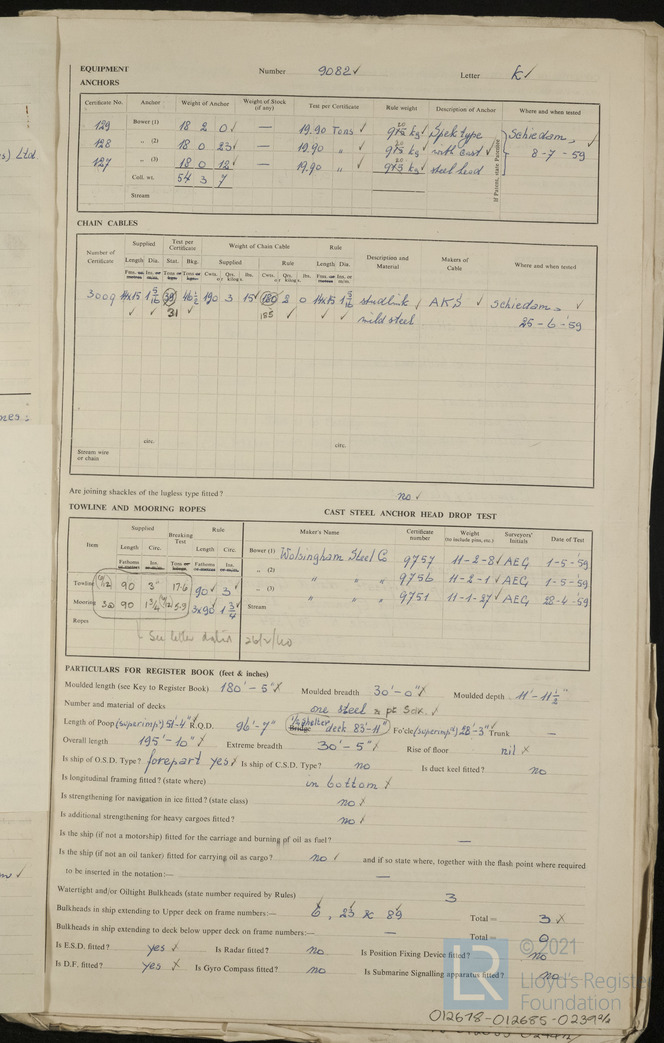 EQUIPMENT Number 9082✓ Letter K✓
ANCHORS
Certificate No. Anchor Weight of Anchor Weight of Stock (if any) Test per Certificate Rule weight Description of Anchor Where and when tested
129 Bower (1) 18 2 0✓ — 19.90 Tons ✓ kg ✓ Spek type Schiedam, ✓
128 „ (2) 18 0 23✓ — 19.90 „ ✓ kg ✓ with cast ✓ 8-7-59
127 „ (3) 18 0 12✓ — 19.90 „ ✓ kg ✓ steel head
Coll. wt. 54 3 7
Stream
If Patent, state Patentee
CHAIN CABLES
Number of Certificate Supplied Test per Certificate Weight of Chain Cable Rule Description and Material Makers of Cable Where and when tested
Length Dia. Stat. Bkg. Supplied Rule Length Dia.
3009 1 5/16 190 3 15✓ 2 0 1 5/16 studlink ✓ AKS ✓ Schiedam, ✓
✓ ✓ 31 ✓ 185 ✓ ✓ mild steel 25-6-59
circ. circ.
Stream wire or chain
Are joining shackles of the lugless type fitted? no ✓
TOWLINE AND MOORING ROPES CAST STEEL ANCHOR HEAD DROP TEST
Item Supplied Breaking Test Rule Maker's Name Certificate number Weight (to include pins, etc.) Surveyors' Initials Date of Test
Length Circ. Length Circ.
Bower (1) Wolsingham Steel Co 9757 11-2-8✓ AEG 1-5-59
„ (2) „ „ „ 9756 11-2-1✓ AEG 1-5-59
„ (3) „ „ „ 9751 11-1-27✓ AEG 28-4-59
Stream
Towline 90 3" 17.6 90✓ 3✓
Mooring 3@ 90 1 3/4 5.9 3x90✓ 1 3/4
Ropes
See letter dated 26/2/60
PARTICULARS FOR REGISTER BOOK (feet & inches)
Moulded length (see Key to Register Book) 180'-5" Moulded breadth 30'-0" Moulded depth 11'-11½"
Number and material of decks one steel & pt
Length of Poop (superimp'd) 51'-4" R.Q.D. 96'-7" Bridge ½ shelter deck 83'-11" Fo'cle (superimp'd) 28'-3" Trunk —
Overall length 195'-10" Extreme breadth 30'-5" Rise of floor nil
Is ship of O.S.D. Type? forepart yes Is ship of C.S.D. Type? no Is duct keel fitted? no
Is longitudinal framing fitted? (state where) in bottom
Is strengthening for navigation in ice fitted? (state class) no
Is additional strengthening for heavy cargoes fitted? no
Is the ship (if not a motorship) fitted for the carriage and burning of oil as fuel? —
Is the ship (if not an oil tanker) fitted for carrying oil as cargo? no and if so state where, together with the flash point where required
to be inserted in the notation:— —
Watertight and/or Oiltight Bulkheads (state number required by Rules) 3
Bulkheads in ship extending to Upper deck on frame numbers:— 6, 23 & 89 Total = 3
Bulkheads extending to deck below upper deck on frame numbers:— — Total = 0
Is E.S.D. fitted? yes Is Radar fitted? no Is Position Fixing Device fitted? no
Is D.F. fitted? yes Is Gyro Compass fitted? no Is Submarine Signalling apparatus fitted? no
LR © 2021
Lloyd's Register
Foundation
012678-012685-0239
s) Ltd.